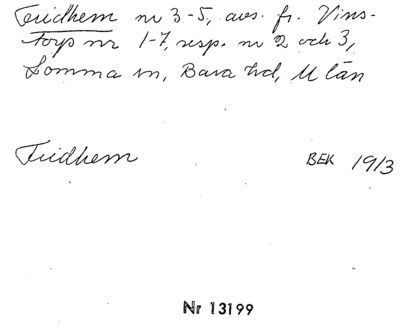 Fridhem nr 3-5, avs. fr. Vins-
torp nr 1-7, resp. nr 2 och 3,
Lomma sn, Bara hd, M län
Fridhem BEK 1913
Nr 13199